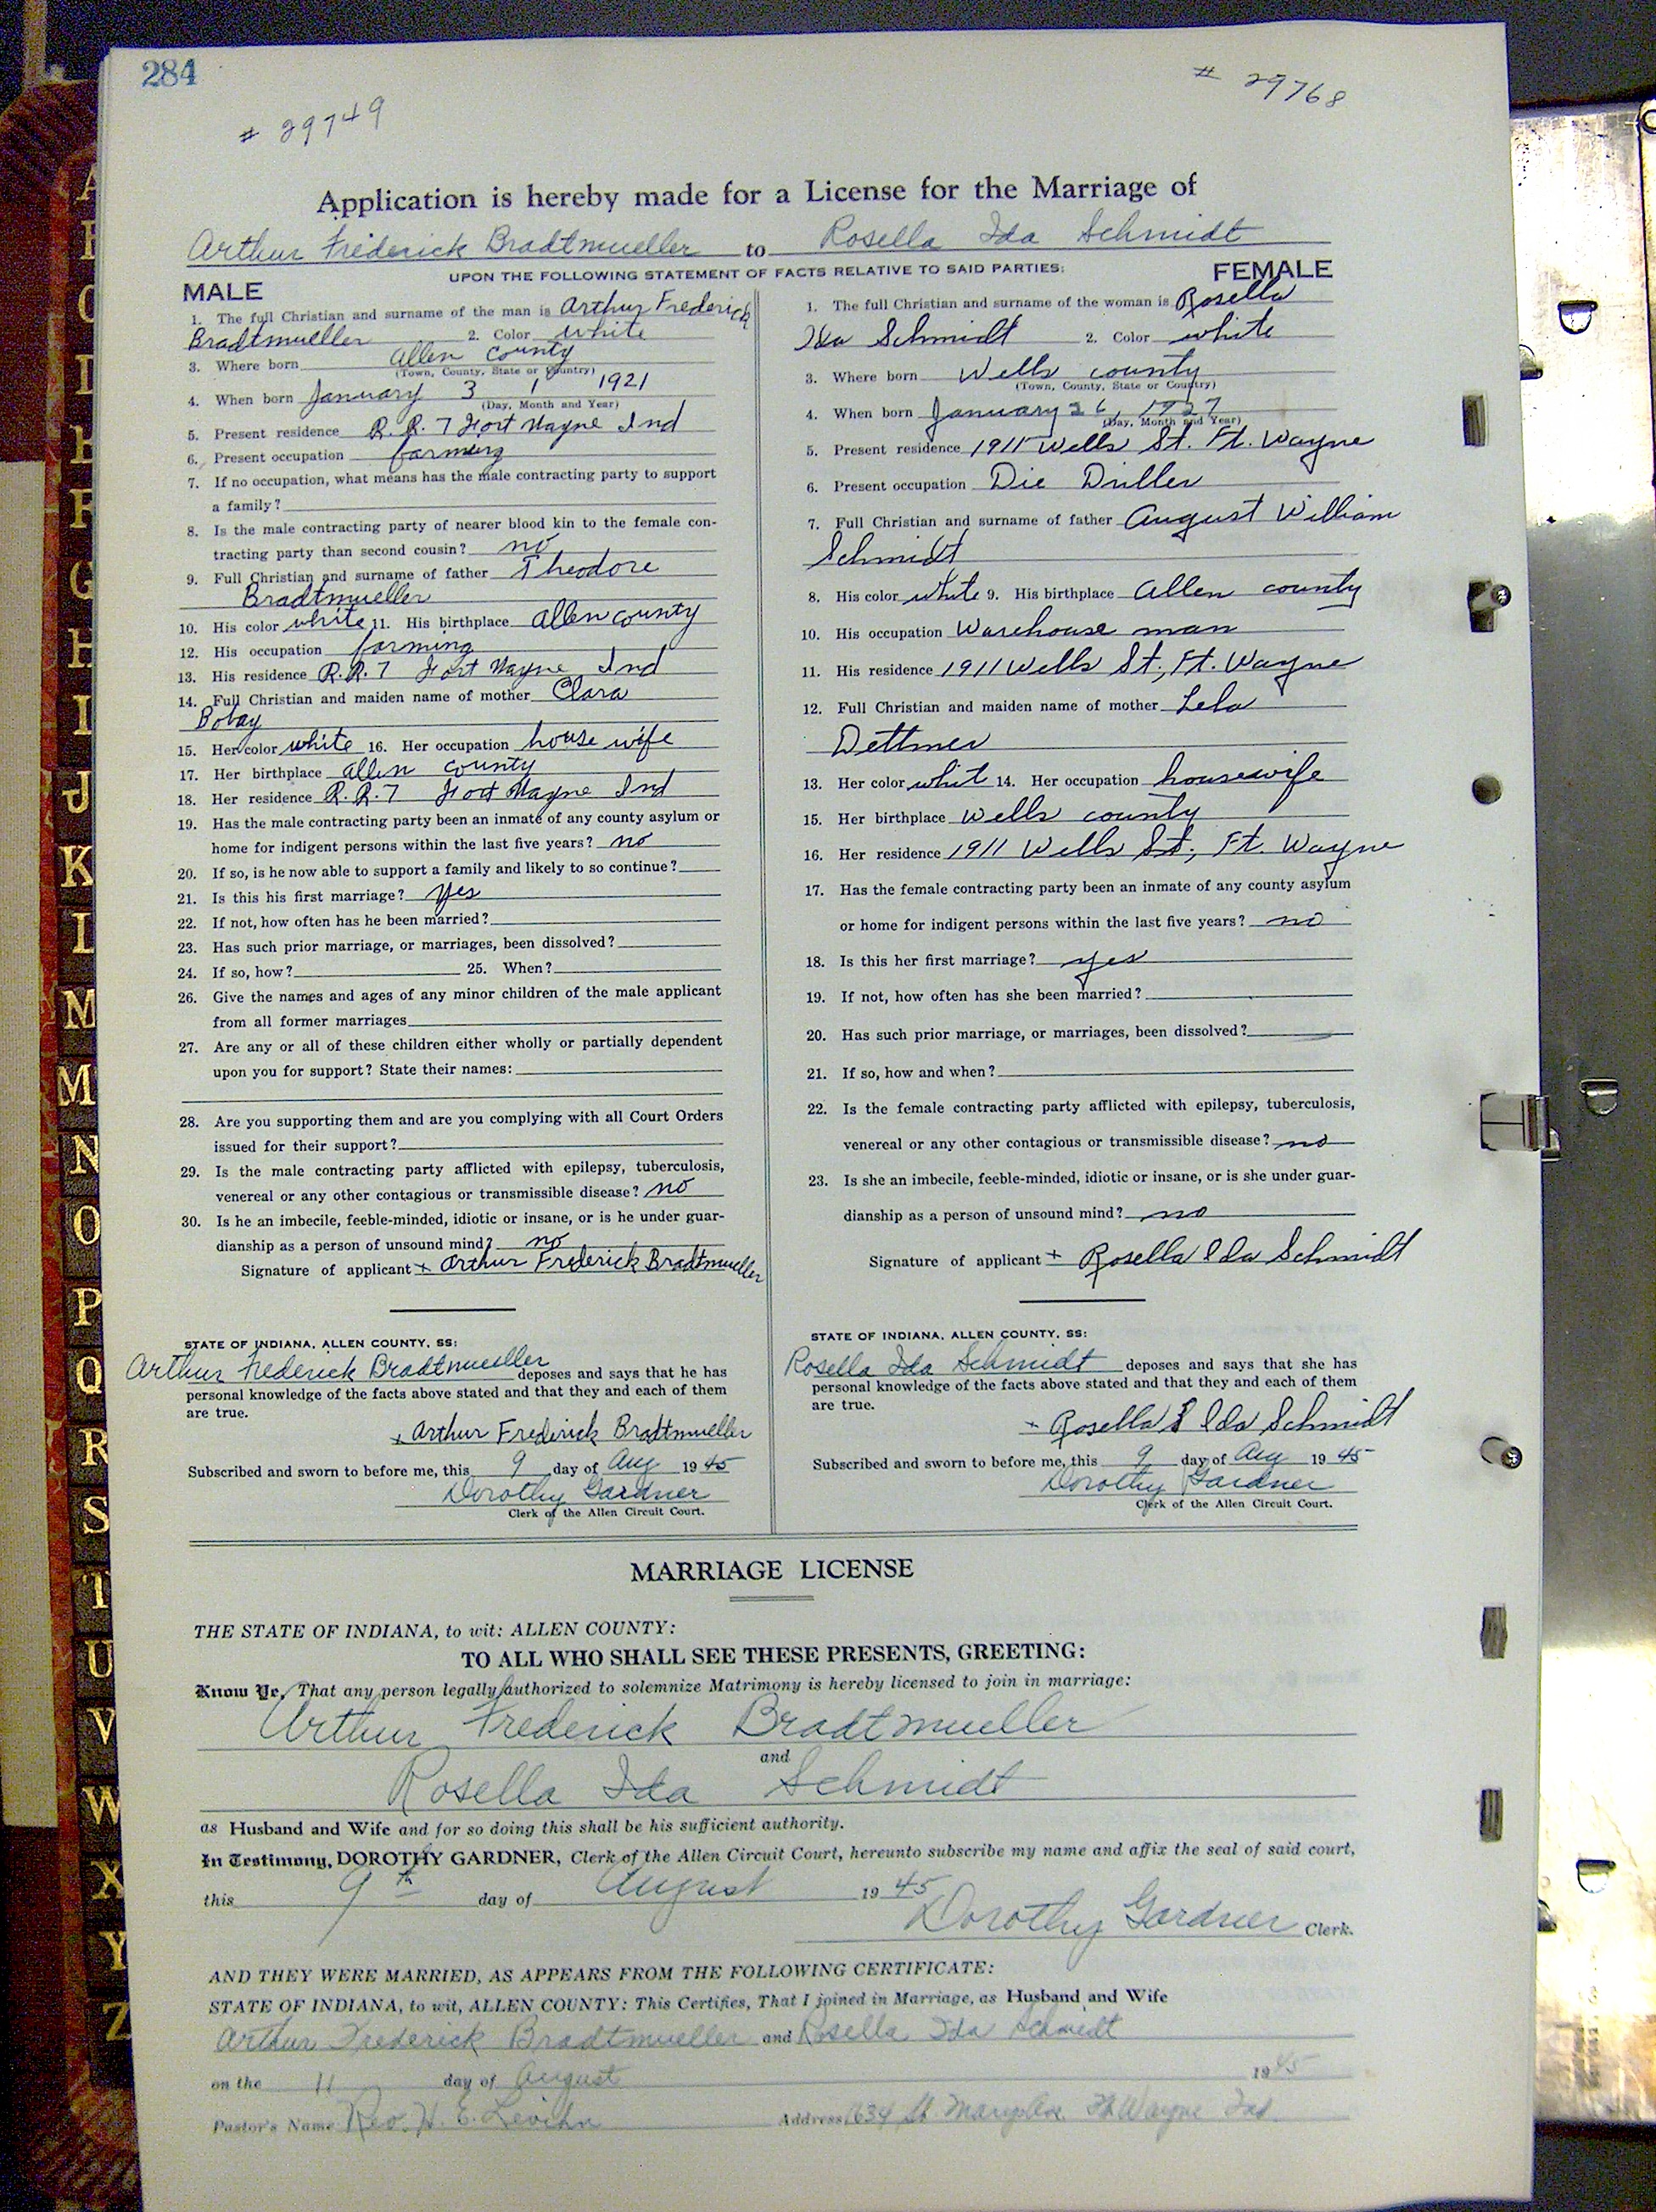 284
# 29749
# 29768
Application is hereby made for a License for the Marriage of
Arthur Frederick Bradtmueller to Rosella Ida Schmidt
UPON THE FOLLOWING STATEMENT OF FACTS RELATIVE TO SAID PARTIES:
MALE
1. The full Christian and surname of the man is Arthur Frederick
Bradtmueller 2. Color white
3. Where born Allen County
(Town, County, State or Country)
4. When born January 3 1921
(Day, Month and Year)
5. Present residence R.R. 7 Fort Wayne Ind
6. Present occupation farming
7. If no occupation, what means has the male contracting party to support
a family?
8. Is the male contracting party of nearer blood kin to the female con-
tracting party than second cousin? no
9. Full Christian and surname of father Theodore
Bradtmueller
10. His color white 11. His birthplace Allen county
12. His occupation farming
13. His residence R.R. 7 Fort Wayne Ind
14. Full Christian and maiden name of mother Clara
Bobay
15. Her color white 16. Her occupation house wife
17. Her birthplace Allen county
18. Her residence R.R. 7 Fort Wayne Ind
19. Has the male contracting party been an inmate of any county asylum or
home for indigent persons within the last five years? no
20. If so, is he now able to support a family and likely to so continue?
21. Is this his first marriage? yes
22. If not, how often has he been married?
23. Has such prior marriage, or marriages, been dissolved?
24. If so, how? 25. When?
26. Give the names and ages of any minor children of the male applicant
from all former marriages
27. Are any or all of these children either wholly or partially dependent
upon you for support? State their names:
28. Are you supporting them and are you complying with all Court Orders
issued for their support?
29. Is the male contracting party afflicted with epilepsy, tuberculosis,
venereal or any other contagious or transmissible disease? no
30. Is he an imbecile, feeble-minded, idiotic or insane, or is he under guar-
dianship as a person of unsound mind? no
Signature of applicant x Arthur Frederick Bradtmueller
STATE OF INDIANA, ALLEN COUNTY, SS:
Arthur Frederick Bradtmueller deposes and says that he has
personal knowledge of the facts above stated and that they and each of them
are true.
x Arthur Frederick Bradtmueller
Subscribed and sworn to before me, this 9 day of Aug 1945
Dorothy Gardner
Clerk of the Allen Circuit Court.
FEMALE
1. The full Christian and surname of the woman is Rosella
Ida Schmidt 2. Color white
3. Where born Wells county
(Town, County, State or Country)
4. When born January 26, 1927
(Day, Month and Year)
5. Present residence 1911 Wells St. Ft. Wayne
6. Present occupation Die Driller
7. Full Christian and surname of father August William
Schmidt
8. His color white 9. His birthplace Allen county
10. His occupation Warehouse man
11. His residence 1911 Wells St., Ft. Wayne
12. Full Christian and maiden name of mother Lela
Dettmer
13. Her color whit 14. Her occupation housewife
15. Her birthplace Wells county
16. Her residence 1911 Wells St., Ft. Wayne
17. Has the female contracting party been an inmate of any county asylum
or home for indigent persons within the last five years? no
18. Is this her first marriage? yes
19. If not, how often has she been married?
20. Has such prior marriage, or marriages, been dissolved?
21. If so, how and when?
22. Is the female contracting party afflicted with epilepsy, tuberculosis,
venereal or any other contagious or transmissible disease? no
23. Is she an imbecile, feeble-minded, idiotic or insane, or is she under guar-
dianship as a person of unsound mind? no
Signature of applicant x Rosella Ida Schmidt
STATE OF INDIANA, ALLEN COUNTY, SS:
Rosella Ida Schmidt deposes and says that she has
personal knowledge of the facts above stated and that they and each of them
are true.
x Rosella Ida Schmidt
Subscribed and sworn to before me, this 9 day of Aug 1945
Dorothy Gardner
Clerk of the Allen Circuit Court.
MARRIAGE LICENSE
THE STATE OF INDIANA, to wit: ALLEN COUNTY:
TO ALL WHO SHALL SEE THESE PRESENTS, GREETING:
Know Ye, That any person legally authorized to solemnize Matrimony is hereby licensed to join in marriage:
Arthur Frederick Bradtmueller
and
Rosella Ida Schmidt
as Husband and Wife and for so doing this shall be his sufficient authority.
In Testimony, DOROTHY GARDNER, Clerk of the Allen Circuit Court, hereunto subscribe my name and affix the seal of said court,
this 9th day of August 1945
Dorothy Gardner Clerk.
AND THEY WERE MARRIED, AS APPEARS FROM THE FOLLOWING CERTIFICATE:
STATE OF INDIANA, to wit, ALLEN COUNTY: This Certifies, That I joined in Marriage, as Husband and Wife
Arthur Frederick Bradtmueller and Rosella Ida Schmidt
on the 11 day of August 1945
Pastor's Name Rev. H. E. Levihn Address 1634 St Marys Ave Ft Wayne Ind
A
G
H
I
J
K
L
M
M
N
O
P
Q
R
S
T
U
V
W
X
Y
Z